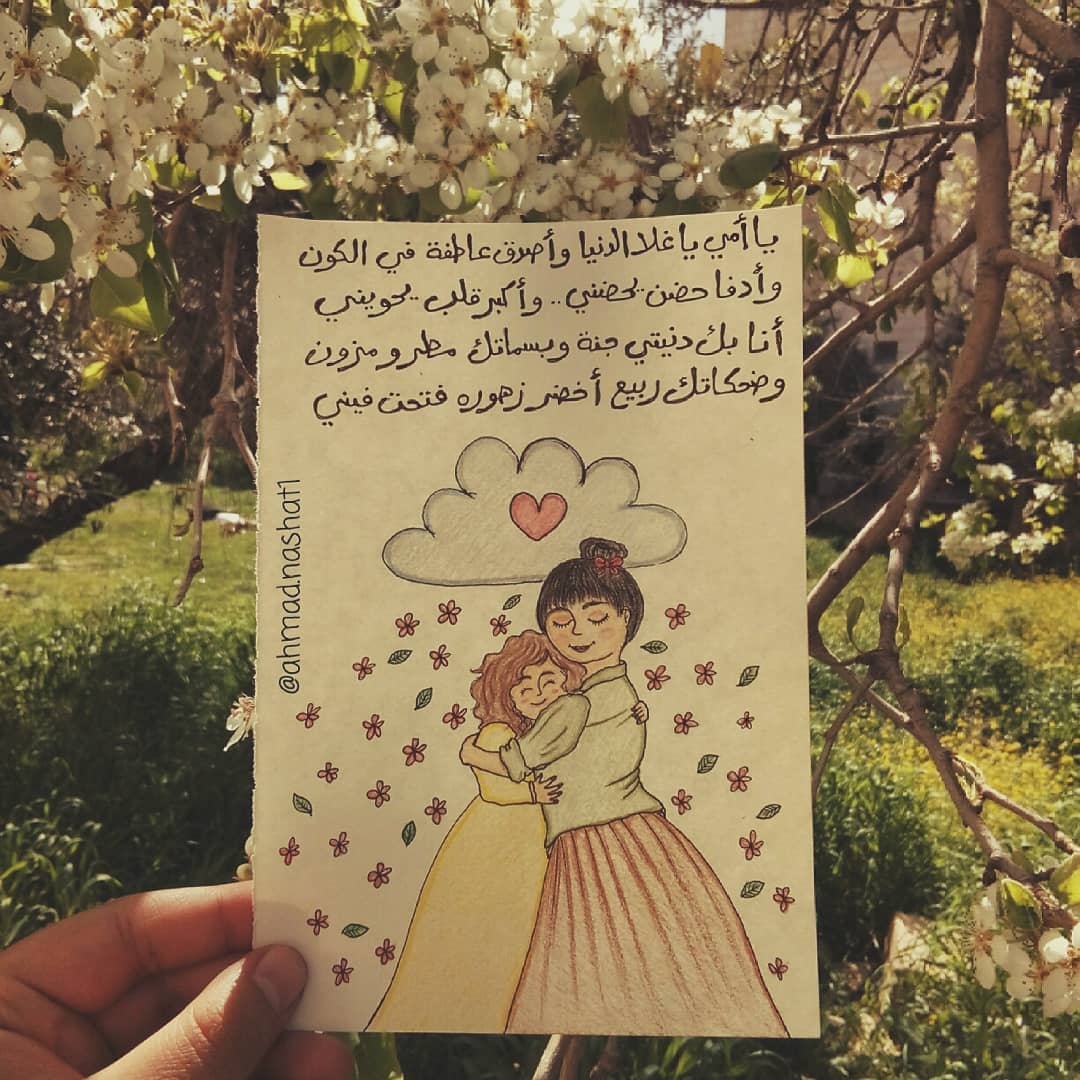 يا أمي يا غلا الدنيا وأصدق عاطفة في الكون
وأدفا حضن يحضنني .. وأكبر قلب يحويني
أنا بك دنيتي جنة وبسماتك مطر ومزون
وضحكاتك ربيع أخضر زهوره فتحت فيني
@ahmad.nashat1